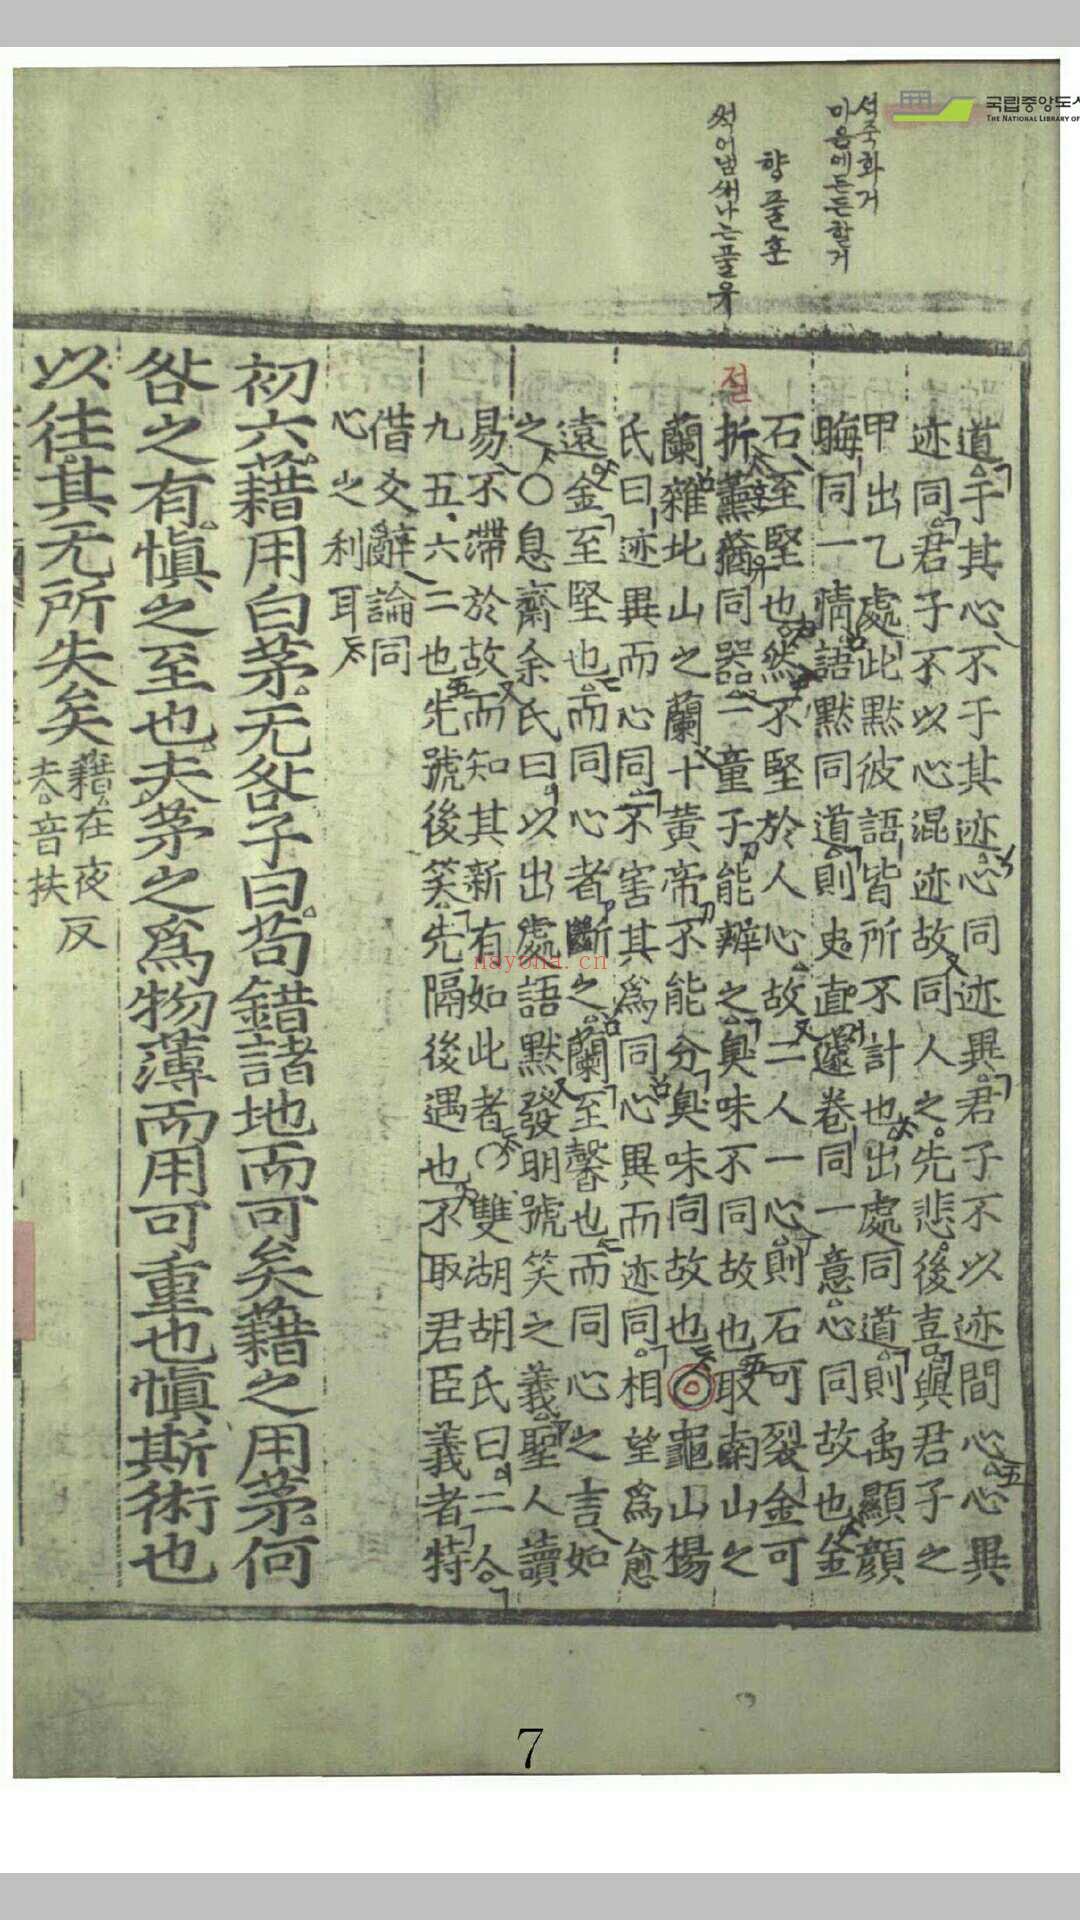 국립중앙도서
THE NATIONAL LIBRARY OF
석중화거
마음에든든할거
향풀훈
썩어냄새나는풀유
절
道于其心不于其迹心同迹異君子不以迹間心心異
迹同君子不以心混迹故同人之先悲後喜與君子之
甲出乙處此默彼語皆所不計也出處同道則禹顯顔
晦同一情語默同道則史直蘧卷同一意心同故也金
石至堅也然不堅於人心故二人一心則石可裂金可
折薰蕕同器一童子能辨之臭味不同故也取南山之
蘭雜北山之蘭十黃帝不能分臭味同故也◎龜山楊
氏曰迹異而心同不害其爲同心異而迹同相望爲愈
遠金至堅也而同心者斷之蘭至馨也而同心之言如
之○息齋余氏曰以出處語默發明號笑之義聖人讀
易不滯於故而知其新有如此者○雙湖胡氏曰二合
九五六二也先號後笑先隔後遇也不取君臣義者特
借爻辭論同
心之利耳
初六藉用白茅无咎子曰苟錯諸地而可矣藉之用茅何
咎之有愼之至也夫茅之爲物薄而用可重也愼斯術也
以往其无所失矣
藉在夜反
夫音扶
nayona.cn
7